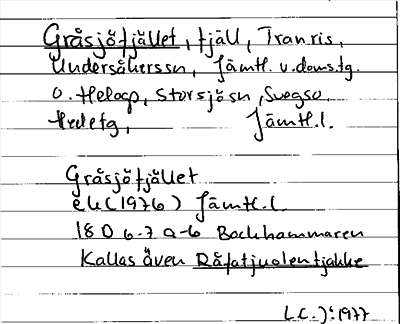 Gråsjöfjället, fjäll, Tranris,
Undersåkerssn, Jämtl. v. doms.tg.
o. Helagp, Storsjö sn, Svegso
Hedetg, Jämtl.l.
Gråsjöfjället
ek (1976) Jämtl.l.
18 D 6-7 a-b Backhammaren
Kallas även Råfatjuolentjakke
L.C.J:1977